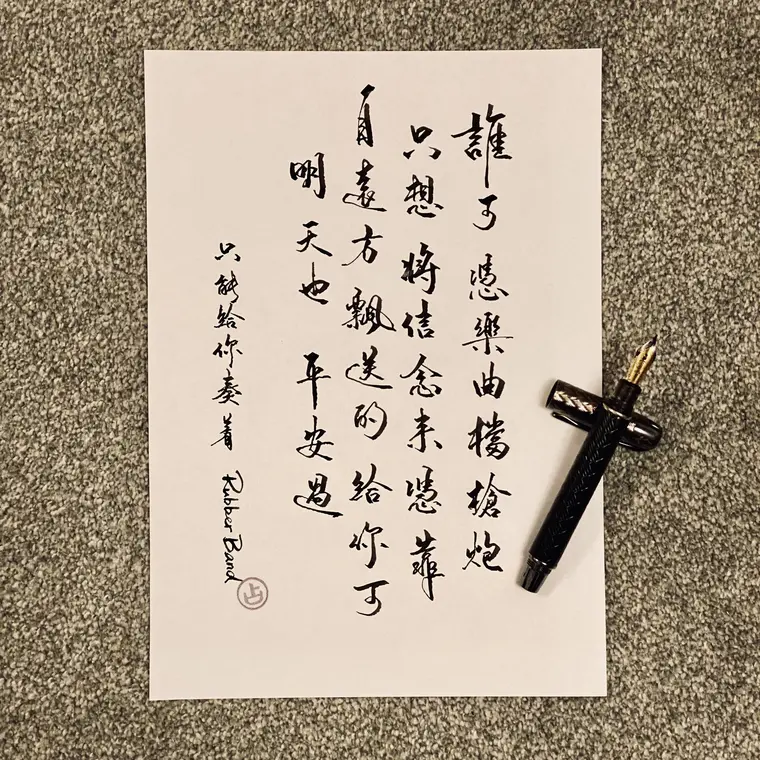 誰可憑樂曲擋槍炮
只想將信念来憑靠
自遠方飄送的給你可
明天也 平安過
只能給你奏着 Rubber Band
占